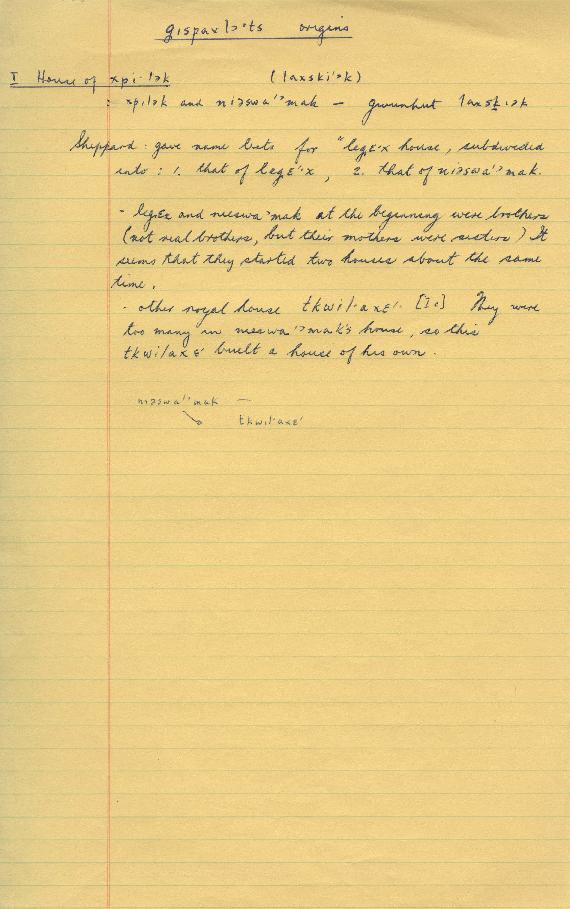 gispaxlɔ·ts origins
I House of xpi·lək (laxski'·k)
: xpilək and niəswa'ʾmak – gwunhut laxskiək
Sheppard : gave name lists for "legɛ·x house, subdivided
into : 1. that of legɛ'·x , 2. that of niəswa'ʾmak.
- legɛx and nieswa'mak at the beginning were brothers
(not real brothers, but their mothers were sisters) It
seems that they started two houses about the same
time.
- other royal house tkwil·axɛ'· [Io] They were
too many in nieswa'ʾmak's house, so this
tkwilaxɛ' built a house of his own.
niəswa'ʾmak –
tkwil·axɛ'